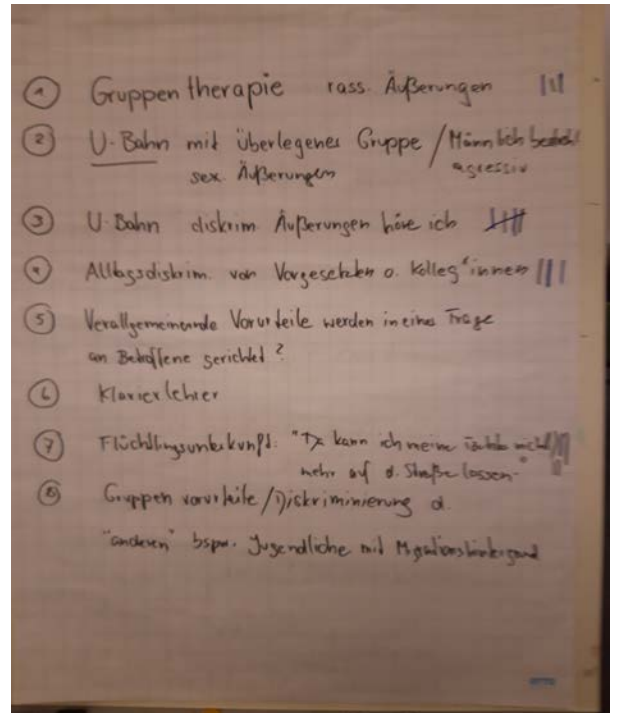 ① Gruppentherapie rass. Äußerungen |||
② U-Bahn mit überlegener Gruppe / Männlich
sex. Äußerungen agressiv
③ U-Bahn diskrim Äußerungen höre ich
④ Alltagsdiskrim. von Vorgesetzten o. Kolleg*innen |||
⑤ Verallgemeinernde Vorurteile werden in einer Frage
an Betroffene gerichtet?
⑥ Klavierlehrer
⑦ Flüchtlingsunterkunft: "Da kann ich meine nicht
mehr auf d. Straße lassen-"
⑧ Gruppenvorurteile/Diskriminierung d.
"anderen" bspw. Jugendliche mit Migrationshintergrund